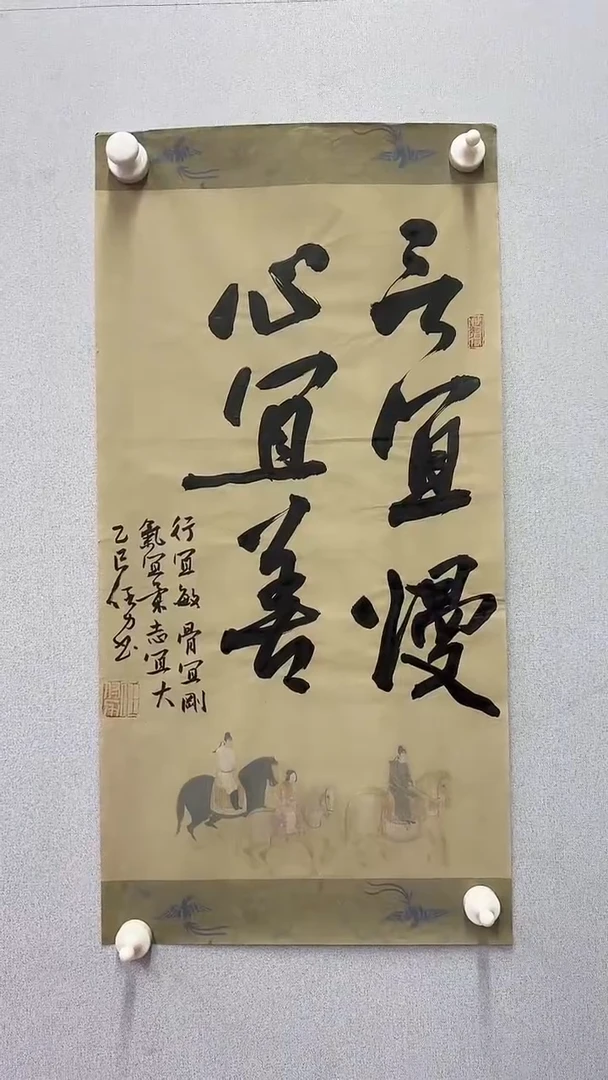 言宜慢
心宜善
行宜敏骨宜剛
氣宜柔志宜大
乙巳任力书